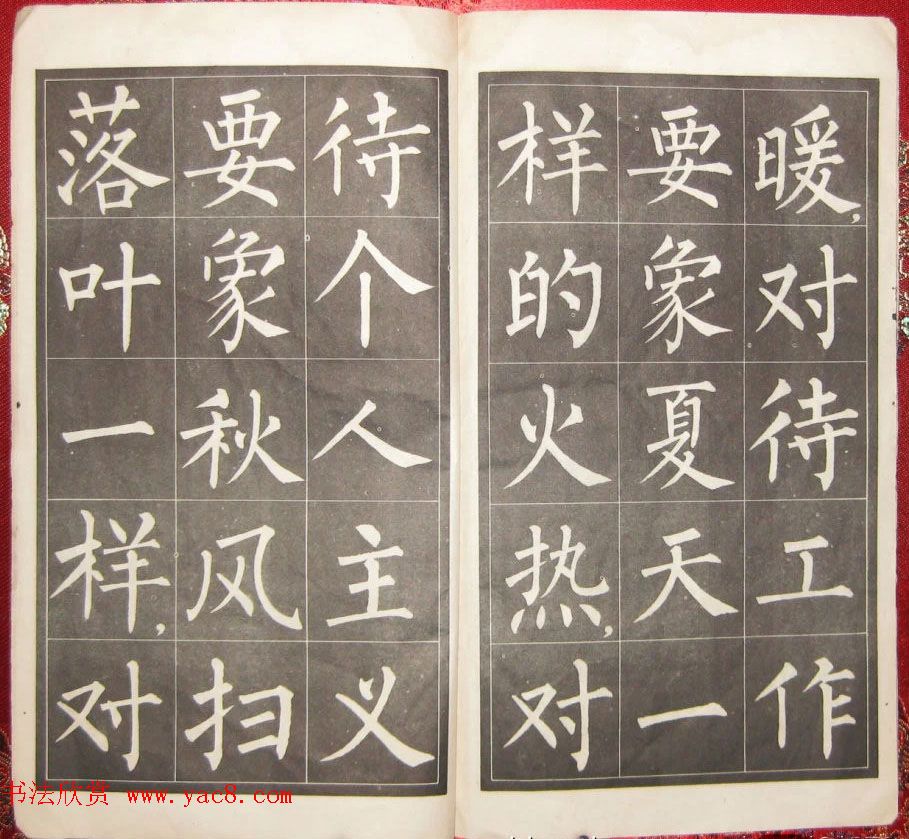 暖，对待工作
要象夏天一
样的火热，对
待个人主义
要象秋风扫
落叶一样，对
书法欣赏 www.yac8.com